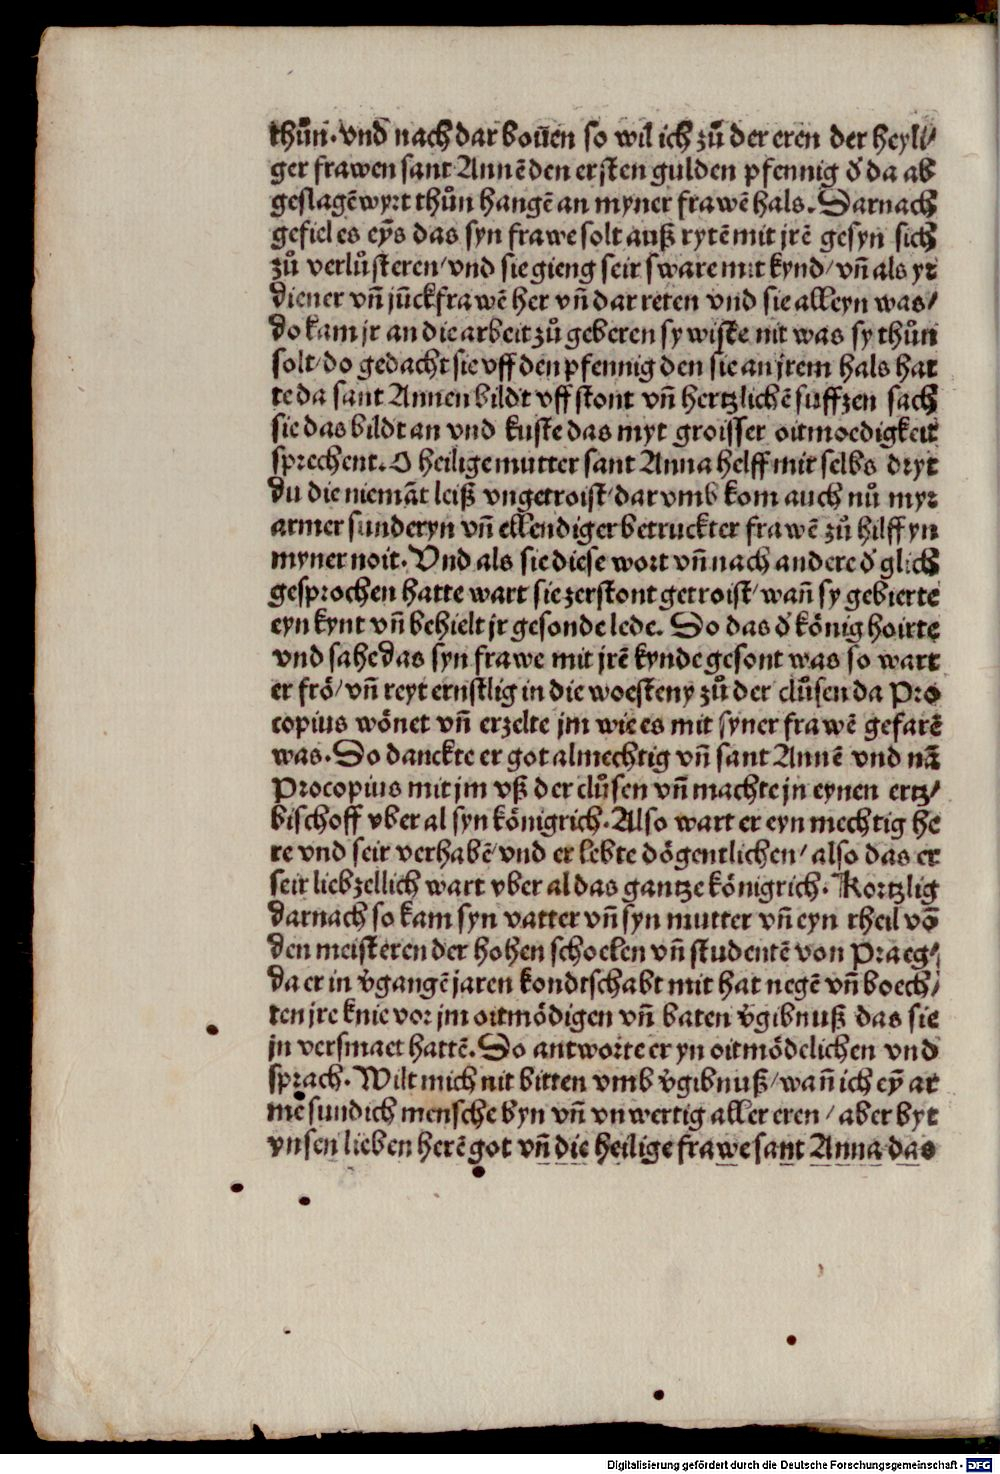 thůn. vnd nach dar boūen so wil ich zů der eren der heyli/
ger frawen sant Annē den ersten gulden pfennig d' da ab
geslagē wyrt thůn hangē an myner frawē hals. Darnach
gefiel es eȳs das syn frawe solt auß rytē mit jrē gesyn sich
zů verlůsteren/ vnd sie gieng seir sware mit kynd/ vn̄ als yr
diener vn̄ jūckfrawē her vn̄ dar reten vnd sie alleyn was/
do kam jr an die arbeit zů geberen sy wiste nit was sy thůn
solt/ do gedacht sie vff den pfennig den sie an jrem hals hat
te da sant Annen bildt vff stont vn̄ hertzlichē suffzen sach
sie das bildt an vnd kuste das myt groisser oitmoedigkeit
sprechent. O heilige mutter sant Anna helff mir selbs dryt
du die niemāt leiß vngetroist/ dar vmb kom auch nů myr
armer sunderyn vn̄ ellendiger betruckter frawē zů hilff yn
myner noit. Vnd als sie diese wort vn̄ nach andere d' glich
gesprochen hatte wart sie zerstont getroist/ wan̄ sy gebierte
eyn kynt vn̄ behielt jr gesonde lede. Do das d' könig hoirte
vnd sahe das syn frawe mit jrē kynde gesont was so wart
er frö/ vn̄ reyt ernstlig in die woesteny zů der clůsen da Pro
copius wönet vn̄ erzelte jm wie es mit syner frawē gefarē
was. Do danckte er got almechtig vn̄ sant Annē vnd nā
Procopius mit jm vß der clůsen vn̄ machte jn eynen ertz/
bischoff vber al syn königrich. Also wart er eyn mechtig he
re vnd seir verhabē/ vnd er lebte dögentlichen/ also das er
seir liebzellich wart vber al das gantze königrich. Kortzlig
darnach so kam syn vatter vn̄ syn mutter vn̄ eyn theil vō
den meisteren der hohen schoelen vn̄ studentē von Praeg/
da er in v'gangē jaren kondtschabt mit hat negē vn̄ boech/
ten jre knie vor jm oitmödigen vn̄ baten v'gibnuß das sie
jn versmaet hattē. Do antworte er yn oitmödelichen vnd
sprach. Wilt mich nit bitten vmb v'gibnuß/ wan̄ ich eȳ ar
mē sundich mensche byn vn̄ vnwertig aller eren/ aber byt
vnsen lieben herē got vn̄ die heilige frawe sant Anna das
Digitalisierung gefördert durch die Deutsche Forschungsgemeinschaft - DFG